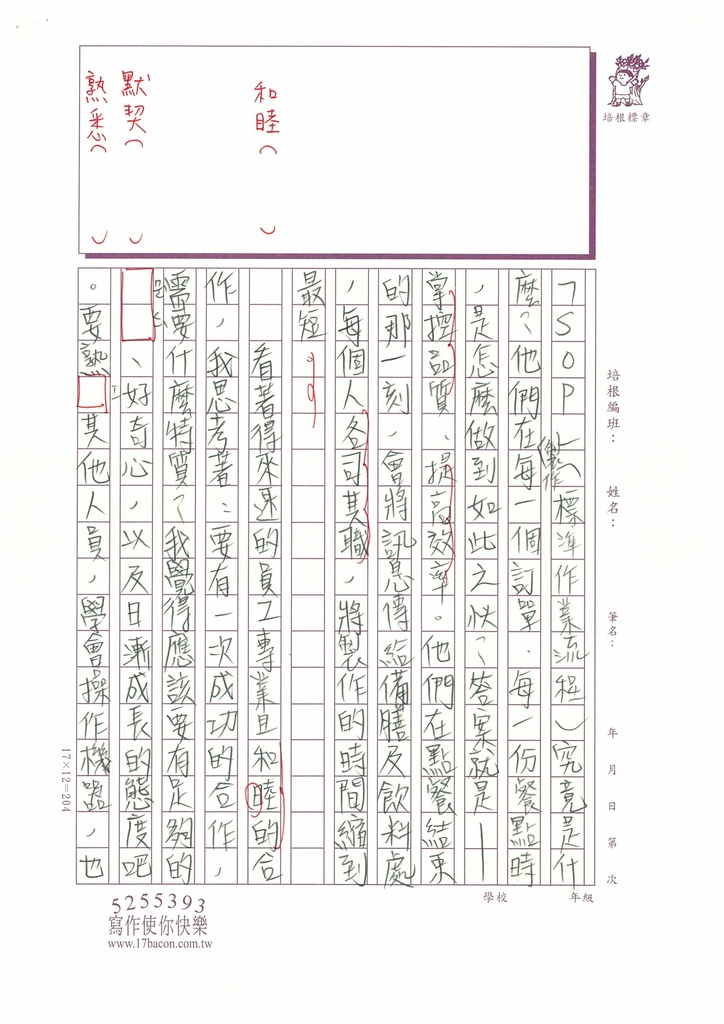 熟悉（　）
默契（　）
和睦（　）
培根標章
培根編班：　姓名：　筆名：　年　月　日　第　次
學校　年級
「SOP」（標準作業流程）究竟是什
麼？他們在每一個訂單、每一份餐點時
製作
，是怎麼做到如此之快？答案就是—
掌控品質、提高效率。他們在點餐結束
的那一刻，會將訊息傳給備膳及飲料處
，每個人各司其職，將製作的時間縮到
最短。
看著得來速的員工專業且和睦的合
作，我思考著：要有一次成功的合作，
需要什麼特質？我覺得應該要有足夠的
、好奇心，以及日漸成長的態度吧
。要熟其他人員，學會操作機器，也
17×12=204
5255393
寫作使你快樂
www.17bacon.com.tw